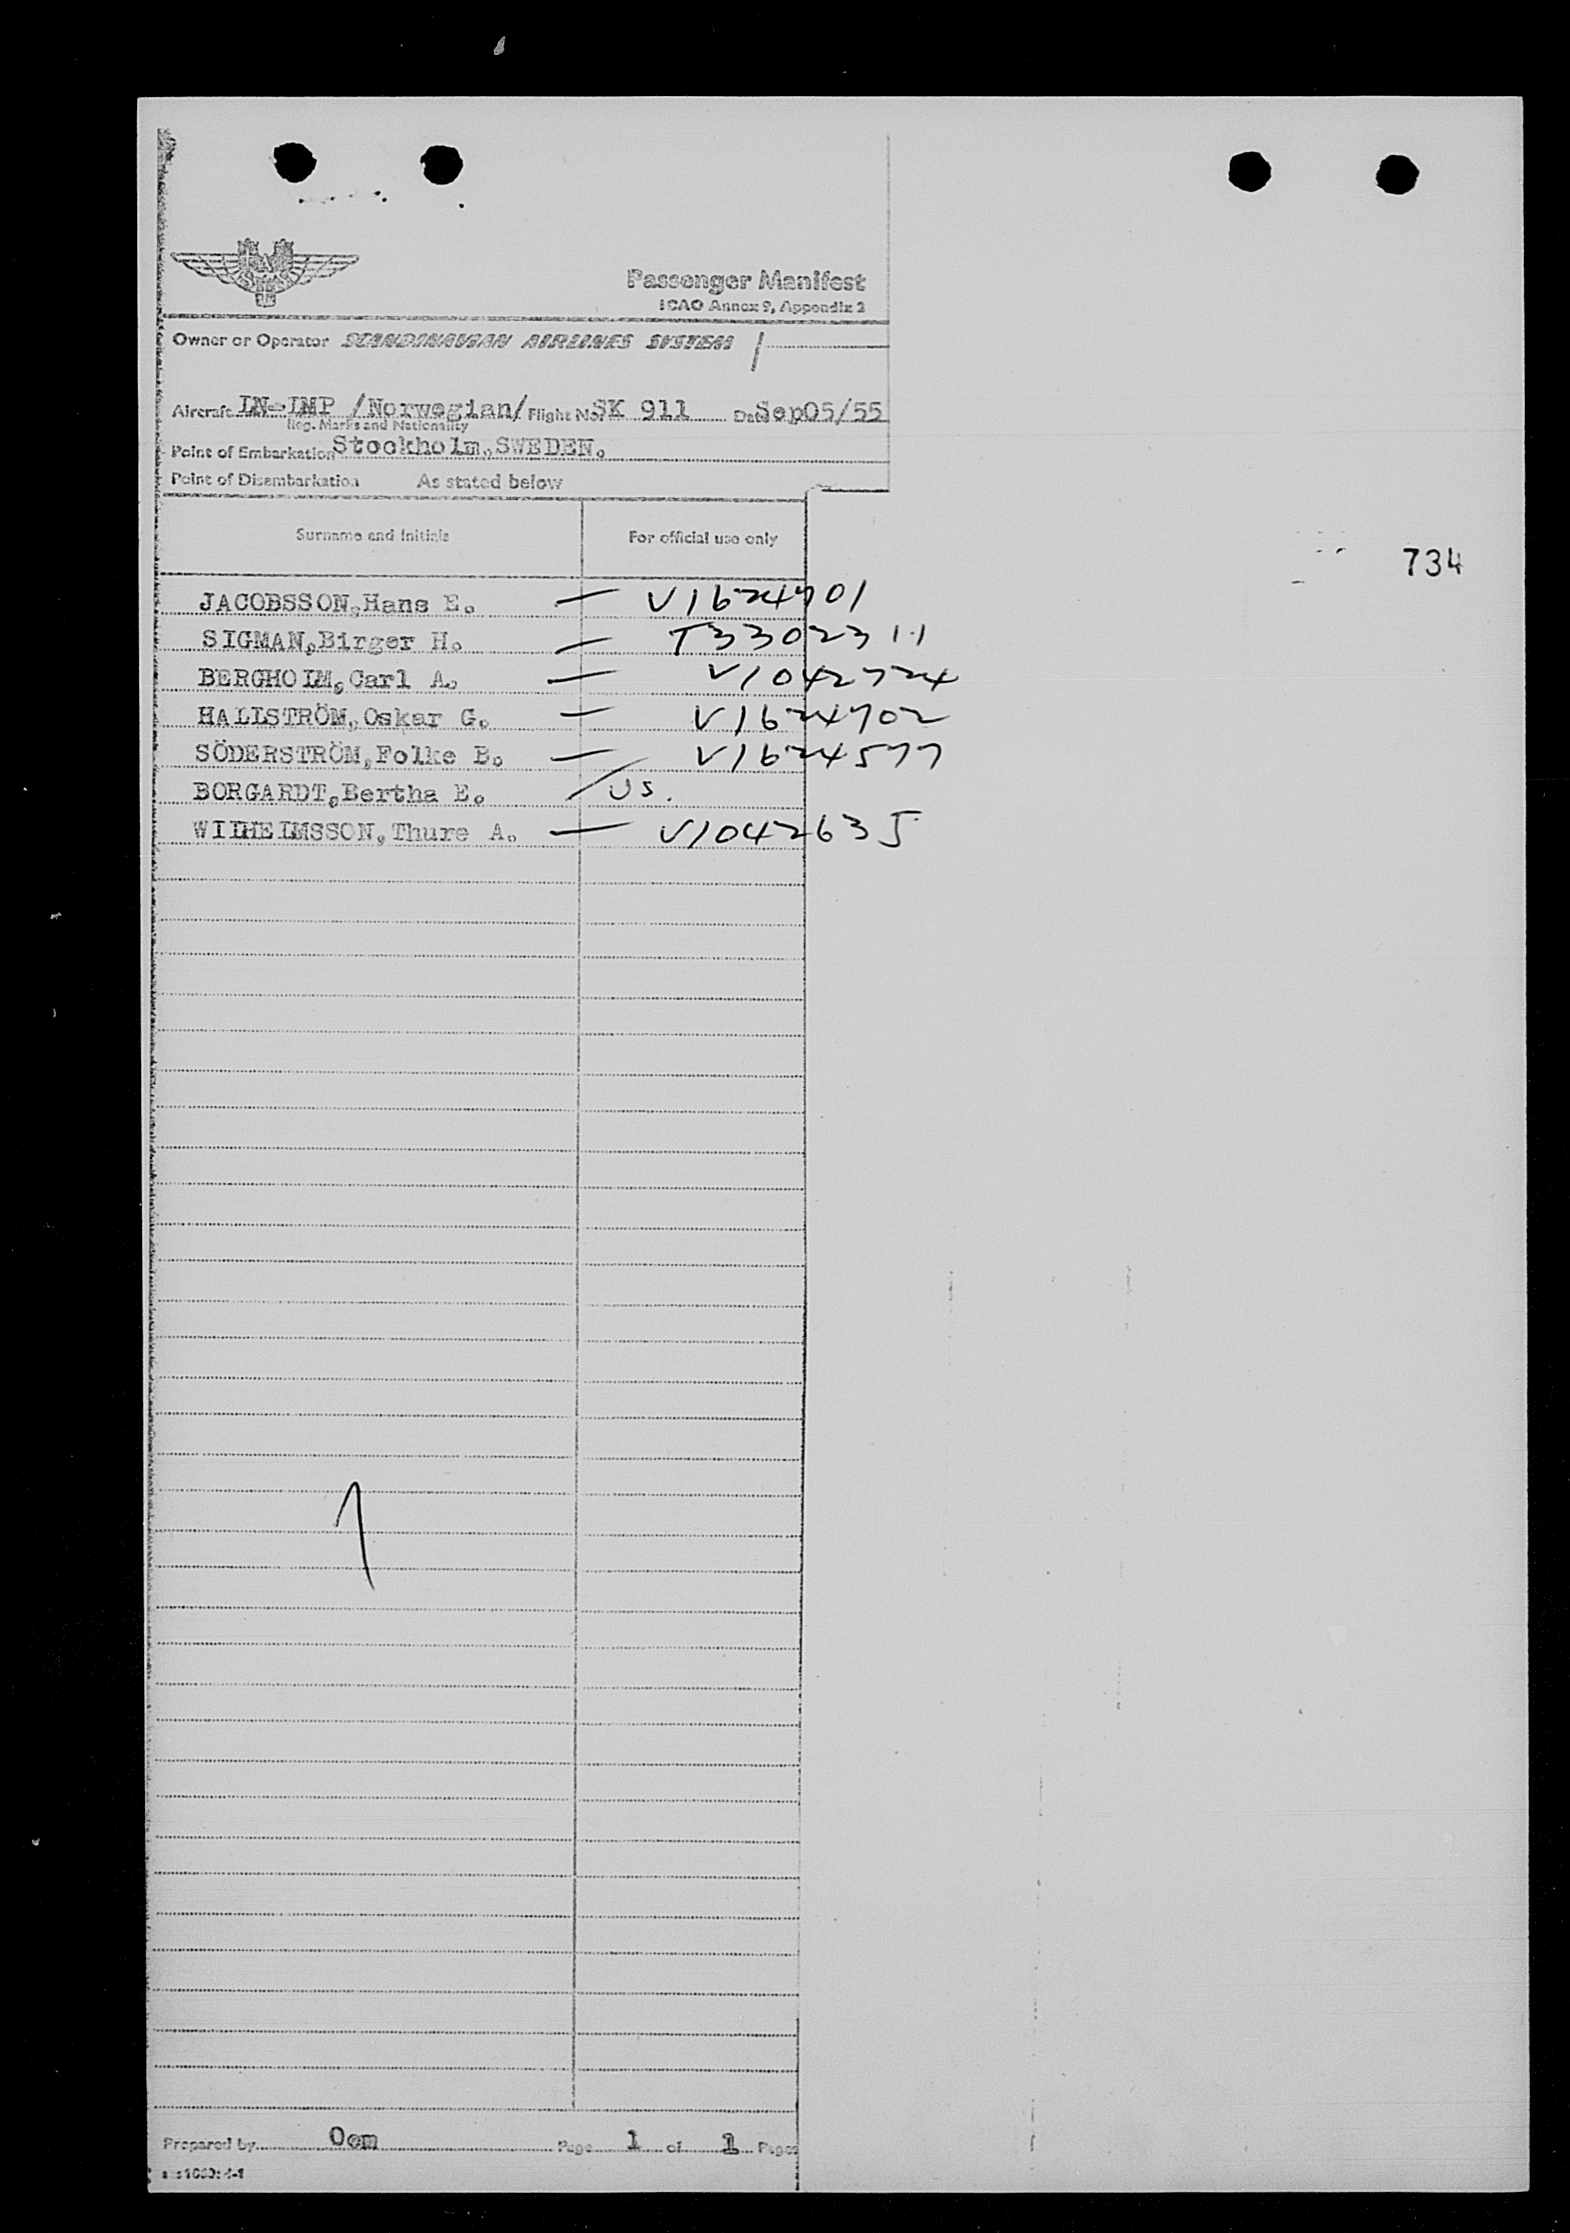 Passenger Manifest
ICAO Annex 9, Appendix 2
Owner or Operator SCANDINAVIAN AIRLINES SYSTEM
Aircraft LN-LMP /Norwegian/ Flight No. SK 911 Date Sep05/55
Reg. Marks and Nationality
Point of Embarkation Stockholm, SWEDEN.
Point of Disembarkation As stated below
Surname and initials For official use only
734
JACOBSSON, Hans E. — V1624701
SIGMAN, Birger H. — T3302311
BERGHOLM, Carl A. — V1042724
HALLSTRÖM, Oskar G. — V1624702
SÖDERSTRÖM, Folke B. — V1624577
BORGARDT, Bertha E. / US.
WILHELMSSON, Thure A. — V1042635
1
Prepared by Oem Page 1 of 1 Pages